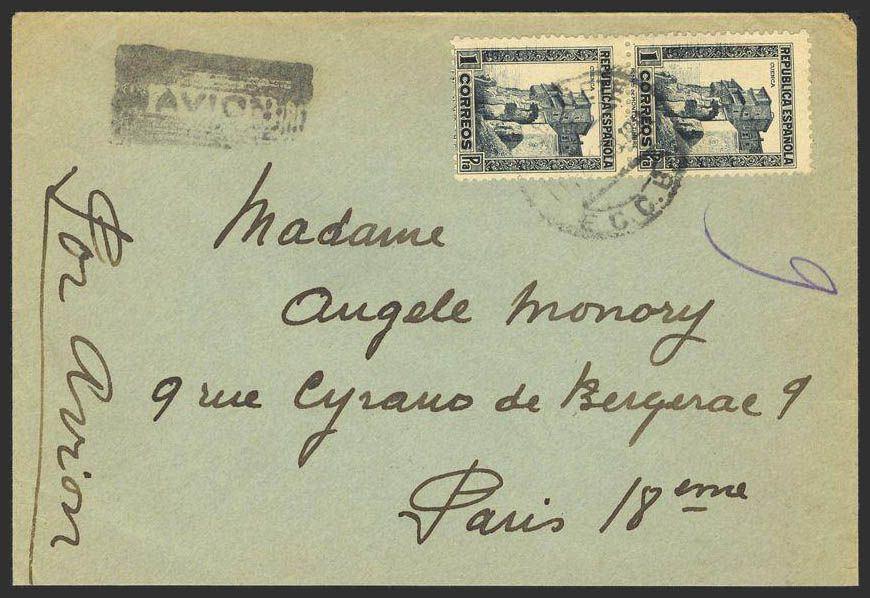 AVION
REPUBLICA ESPAÑOLA
CUENCA
1 CORREOS Pta
REPUBLICA ESPAÑOLA
CUENCA
1 CORREOS Pta
C.C.B
9
Por Avion
Madame
Angele Monory
9 rue Cyrano de Bergerac 9
Paris 18eme